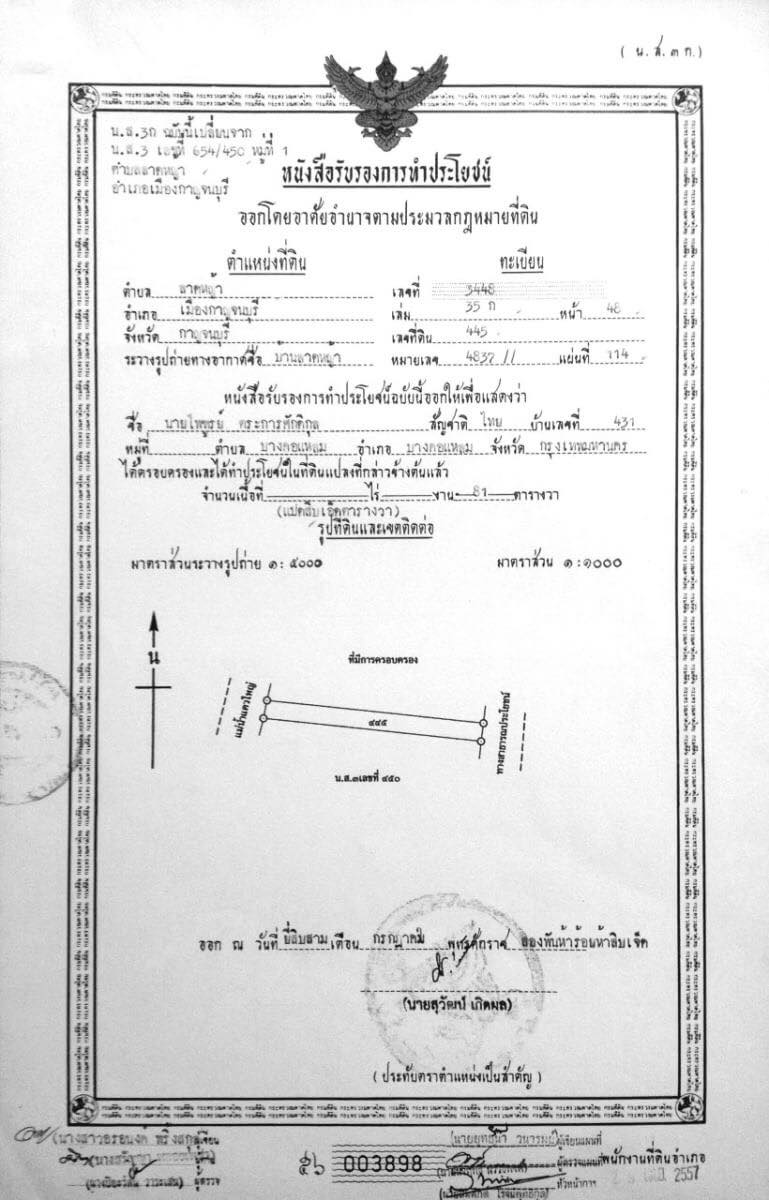 ( น.ส.๓ ก.)
น.ส.3ก ฉบับนี้เปลี่ยนจาก
น.ส.3 เลขที่ 654/450 หมู่ที่ 1
ตำบลลาดหญ้า
อำเภอเมืองกาญจนบุรี
หนังสือรับรองการทำประโยชน์
ออกโดยอาศัยอำนาจตามประมวลกฎหมายที่ดิน
ตำแหน่งที่ดิน ทะเบียน
ตำบล ลาดหญ้า เลขที่ 3448
อำเภอ เมืองกาญจนบุรี เล่ม 35 ก หน้า 48
จังหวัด กาญจนบุรี เลขที่ดิน 445
ระวางรูปถ่ายทางอากาศชื่อ บ้านลาดหญ้า หมายเลข 4837 II แผ่นที่ 114
หนังสือรับรองการทำประโยชน์ฉบับนี้ออกให้เพื่อแสดงว่า
ชื่อ นายไพฑูรย์ ตระการศักดิกุล สัญชาติ ไทย บ้านเลขที่ 431
หมู่ที่ ตำบล บางคอแหลม อำเภอ บางคอแหลม จังหวัด กรุงเทพมหานคร
ได้ครอบครองและได้ทำประโยชน์ในที่ดินแปลงที่กล่าวข้างต้นแล้ว
จำนวนเนื้อที่ ไร่ งาน 81 ตารางวา
(แปดสิบเอ็ดตารางวา)
รูปที่ดินและเขตติดต่อ
มาตราส่วนระวางรูปถ่าย ๑: ๕๐๐๐ มาตราส่วน ๑:๑๐๐๐
น
ที่มีการครอบครอง
แม่น้ำแควใหญ่
๔๔๕
ทางสาธารณประโยชน์
น.ส.๓เลขที่ ๔๕๐
ออก ณ วันที่ ยี่สิบสาม เดือน กรกฎาคม พุทธศักราช สองพันห้าร้อยห้าสิบเจ็ด
(นายสุวัฒน์ เกิดผล)
(ประทับตราตำแหน่งเป็นสำคัญ)
ผู้เขียนแผนที่
ผู้ตรวจแผนที่ พนักงานที่ดินอำเภอ
003898
ผู้ตรวจ หัวหน้าการ 2557